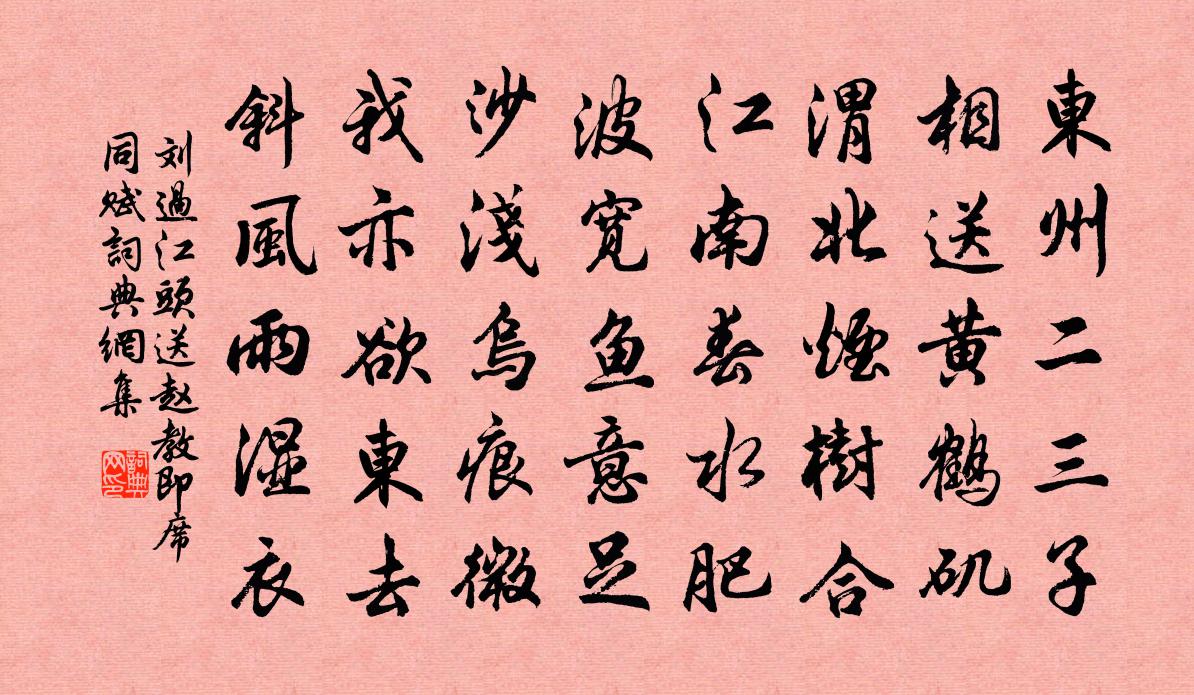 東州二三子
相送黄鶴矶
渭北煙樹合
江南春水肥
波宽鱼意足
沙淺烏痕微
我亦欲東去
斜風雨濕衣
刘過江頭送赵教即席
同赋詞典網集
詞典网印